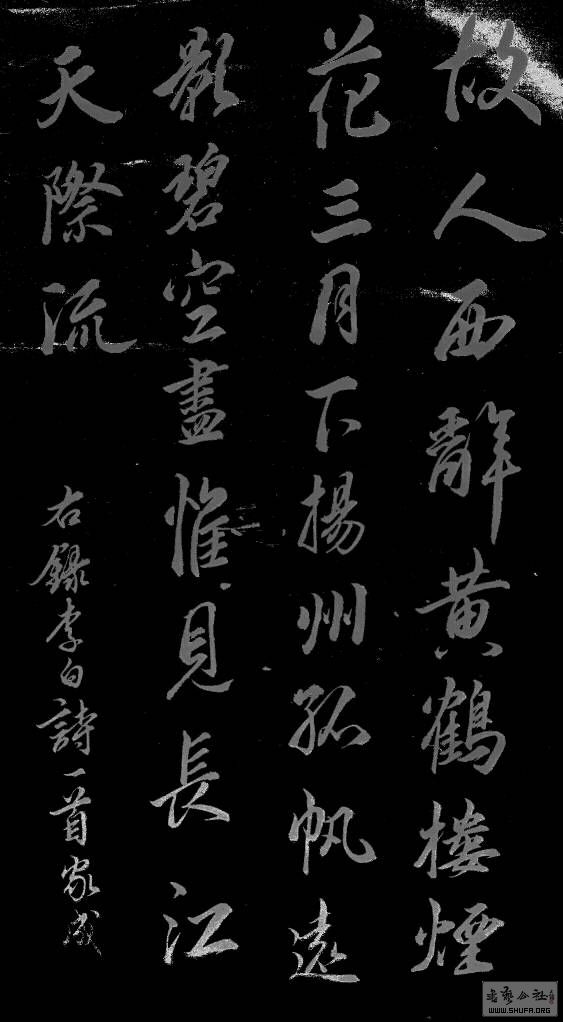 故人西辭黄鶴樓煙
花三月下揚州孤帆遠
影碧空盡惟見長江
天際流
右錄李白詩一首家成
书艺公社
WWW.SHUFA.ORG